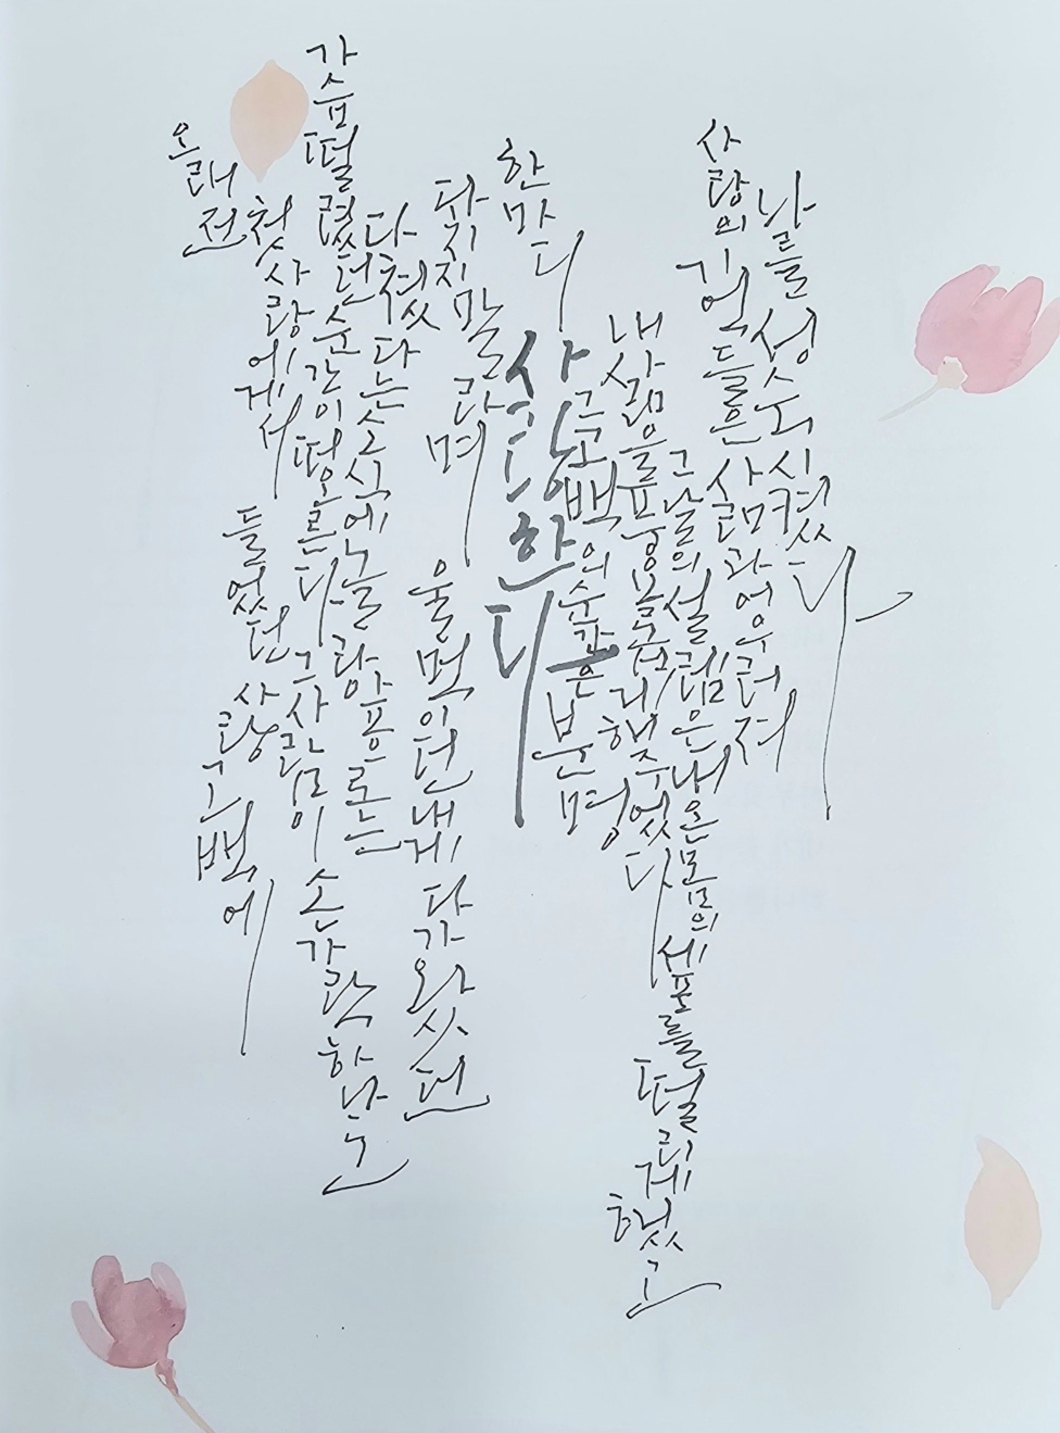 오래전
첫사랑에게서
들었던 사랑고백에
가슴떨렸던 순간이 떠오른다 그사람이 손가락하나
다쳤다는소식에 앞으로는
다치지말라며
울먹이던내게 다가왔던
한마디
사랑한다
그고백의순간은분명
내삶을풍요롭게해주었다
그날의설렘은내온몸의세포를떨리게했고
사랑의기억들은 삶과어우러져
나를성숙시켰다